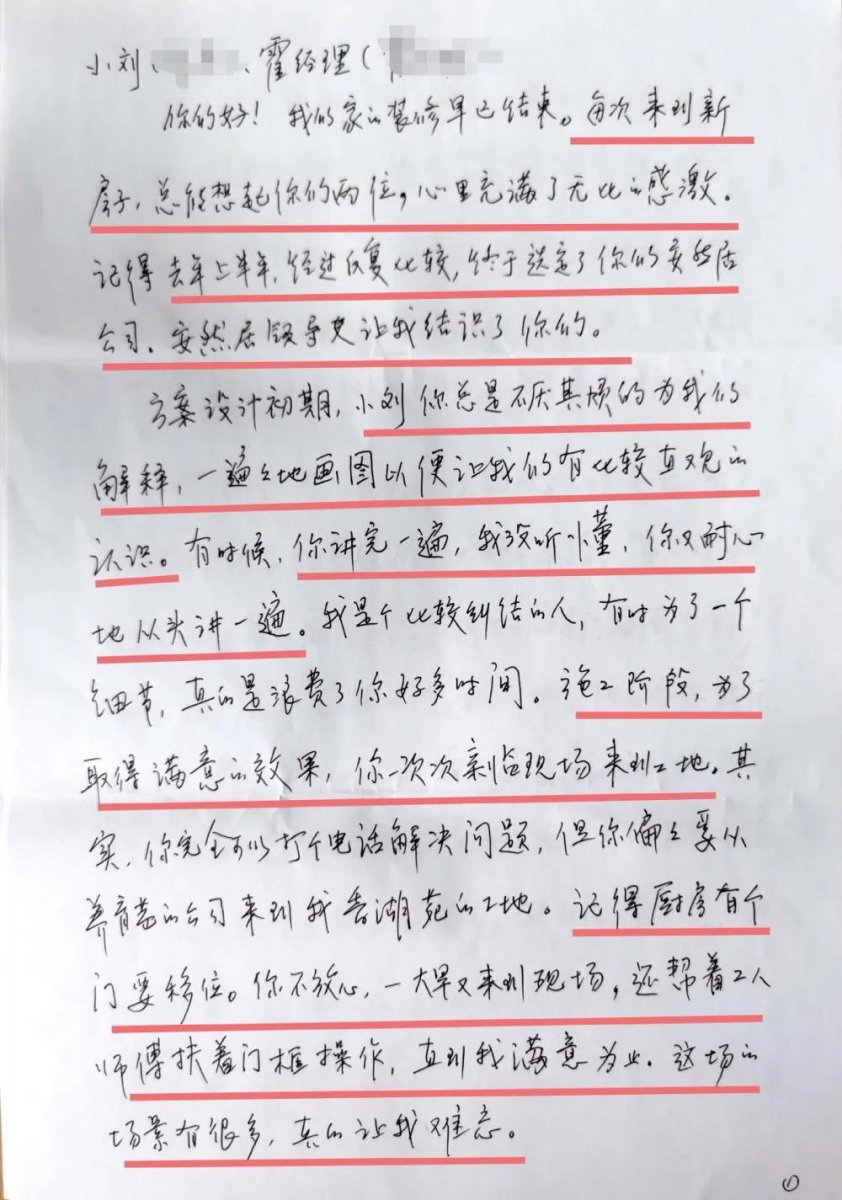 小刘、、霍经理(
你们好！我们家的装修早已结束。每次来到新
房子，总能想起你们两位，心里充满了无比的感激。
记得去年上半年，经过反复比较，终于选定了你们安然居
公司。安然居领导又让我结识了你们。
方案设计初期，小刘你总是不厌其烦的为我们
解释，一遍々地画图以便让我们有比较直观的
认识。有时候，你讲完一遍，我没听懂，你又耐心
地从头讲一遍。我是个比较纠结的人，有时为了一个
细节，真的是浪费了你好多时间。施工阶段，为了
取得满意的效果，你一次次亲临现场来到工地。其
实，你完全可以打个电话解决问题，但你偏々要从
养育巷的公司来到我香湖苑的工地。记得厨房有个
门要移位。你不放心，一大早又来到现场，还帮着工人
师傅扶着门框操作，直到我满意为止。这场的
场景有很多，真的让我难忘。
①